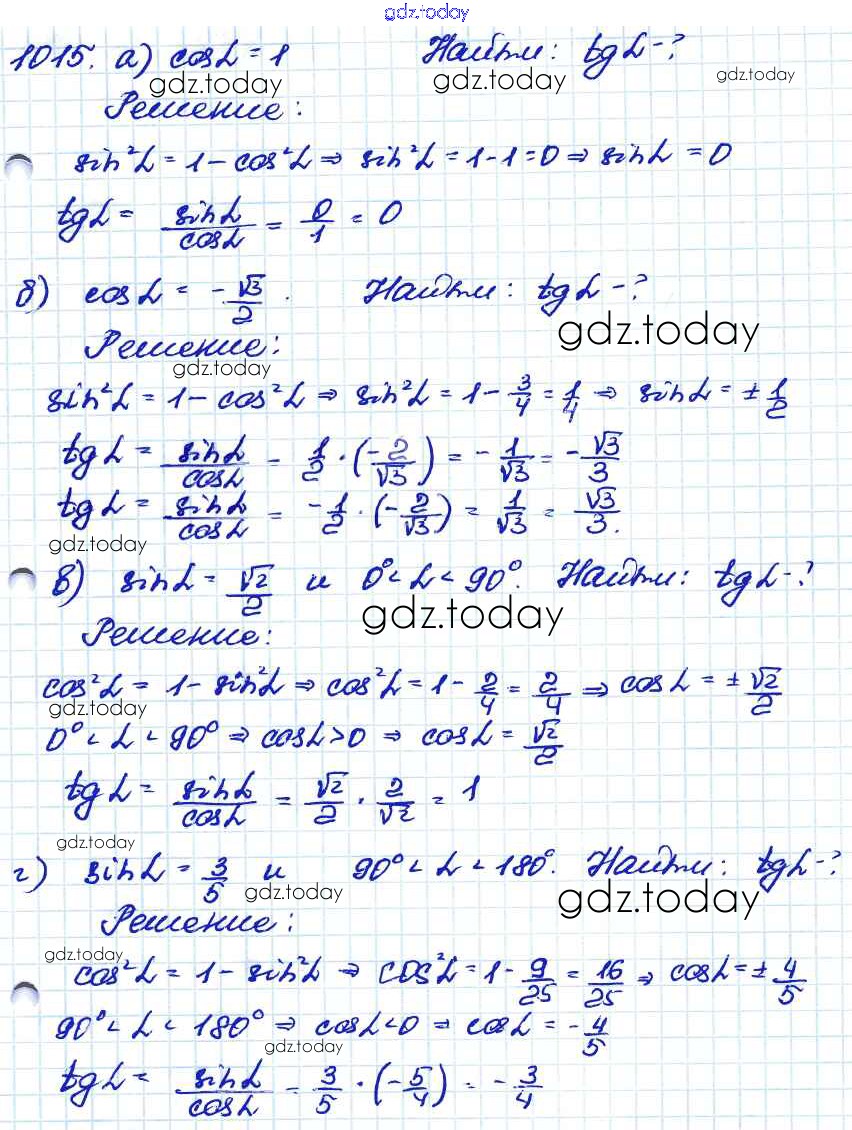 gdz.today
1015. а) cosα = 1 Найти: tgα - ?
gdz.today gdz.today gdz.today
Решение:
sin²α = 1 - cos²α ⇒ sin²α = 1 - 1 = 0 ⇒ sinα = 0
tgα = sinα/cosα = 0/1 = 0
б) cosα = -√3/2. Найти: tgα - ?
gdz.today
Решение:
gdz.today
sin²α = 1 - cos²α ⇒ sin²α = 1 - 3/4 = 1/4 ⇒ sinα = ± 1/2
tgα = sinα/cosα = 1/2 · (-2/√3) = -1/√3 = -√3/3
tgα = sinα/cosα = -1/2 · (-2/√3) = 1/√3 = √3/3.
gdz.today
в) sinα = √2/2 и 0° < α < 90°. Найти: tgα - ?
gdz.today
Решение:
cos²α = 1 - sin²α ⇒ cos²α = 1 - 2/4 = 2/4 ⇒ cosα = ± √2/2
gdz.today
0° < α < 90° ⇒ cosα > 0 ⇒ cosα = √2/2
tgα = sinα/cosα = √2/2 · 2/√2 = 1
gdz.today
г) sinα = 3/5 и 90° < α < 180°. Найти: tgα - ?
gdz.today gdz.today
Решение:
gdz.today
cos²α = 1 - sin²α ⇒ cos²α = 1 - 9/25 = 16/25 ⇒ cosα = ± 4/5
90° < α < 180° ⇒ cosα < 0 ⇒ cosα = -4/5
gdz.today
tgα = sinα/cosα = 3/5 · (-5/4) = -3/4